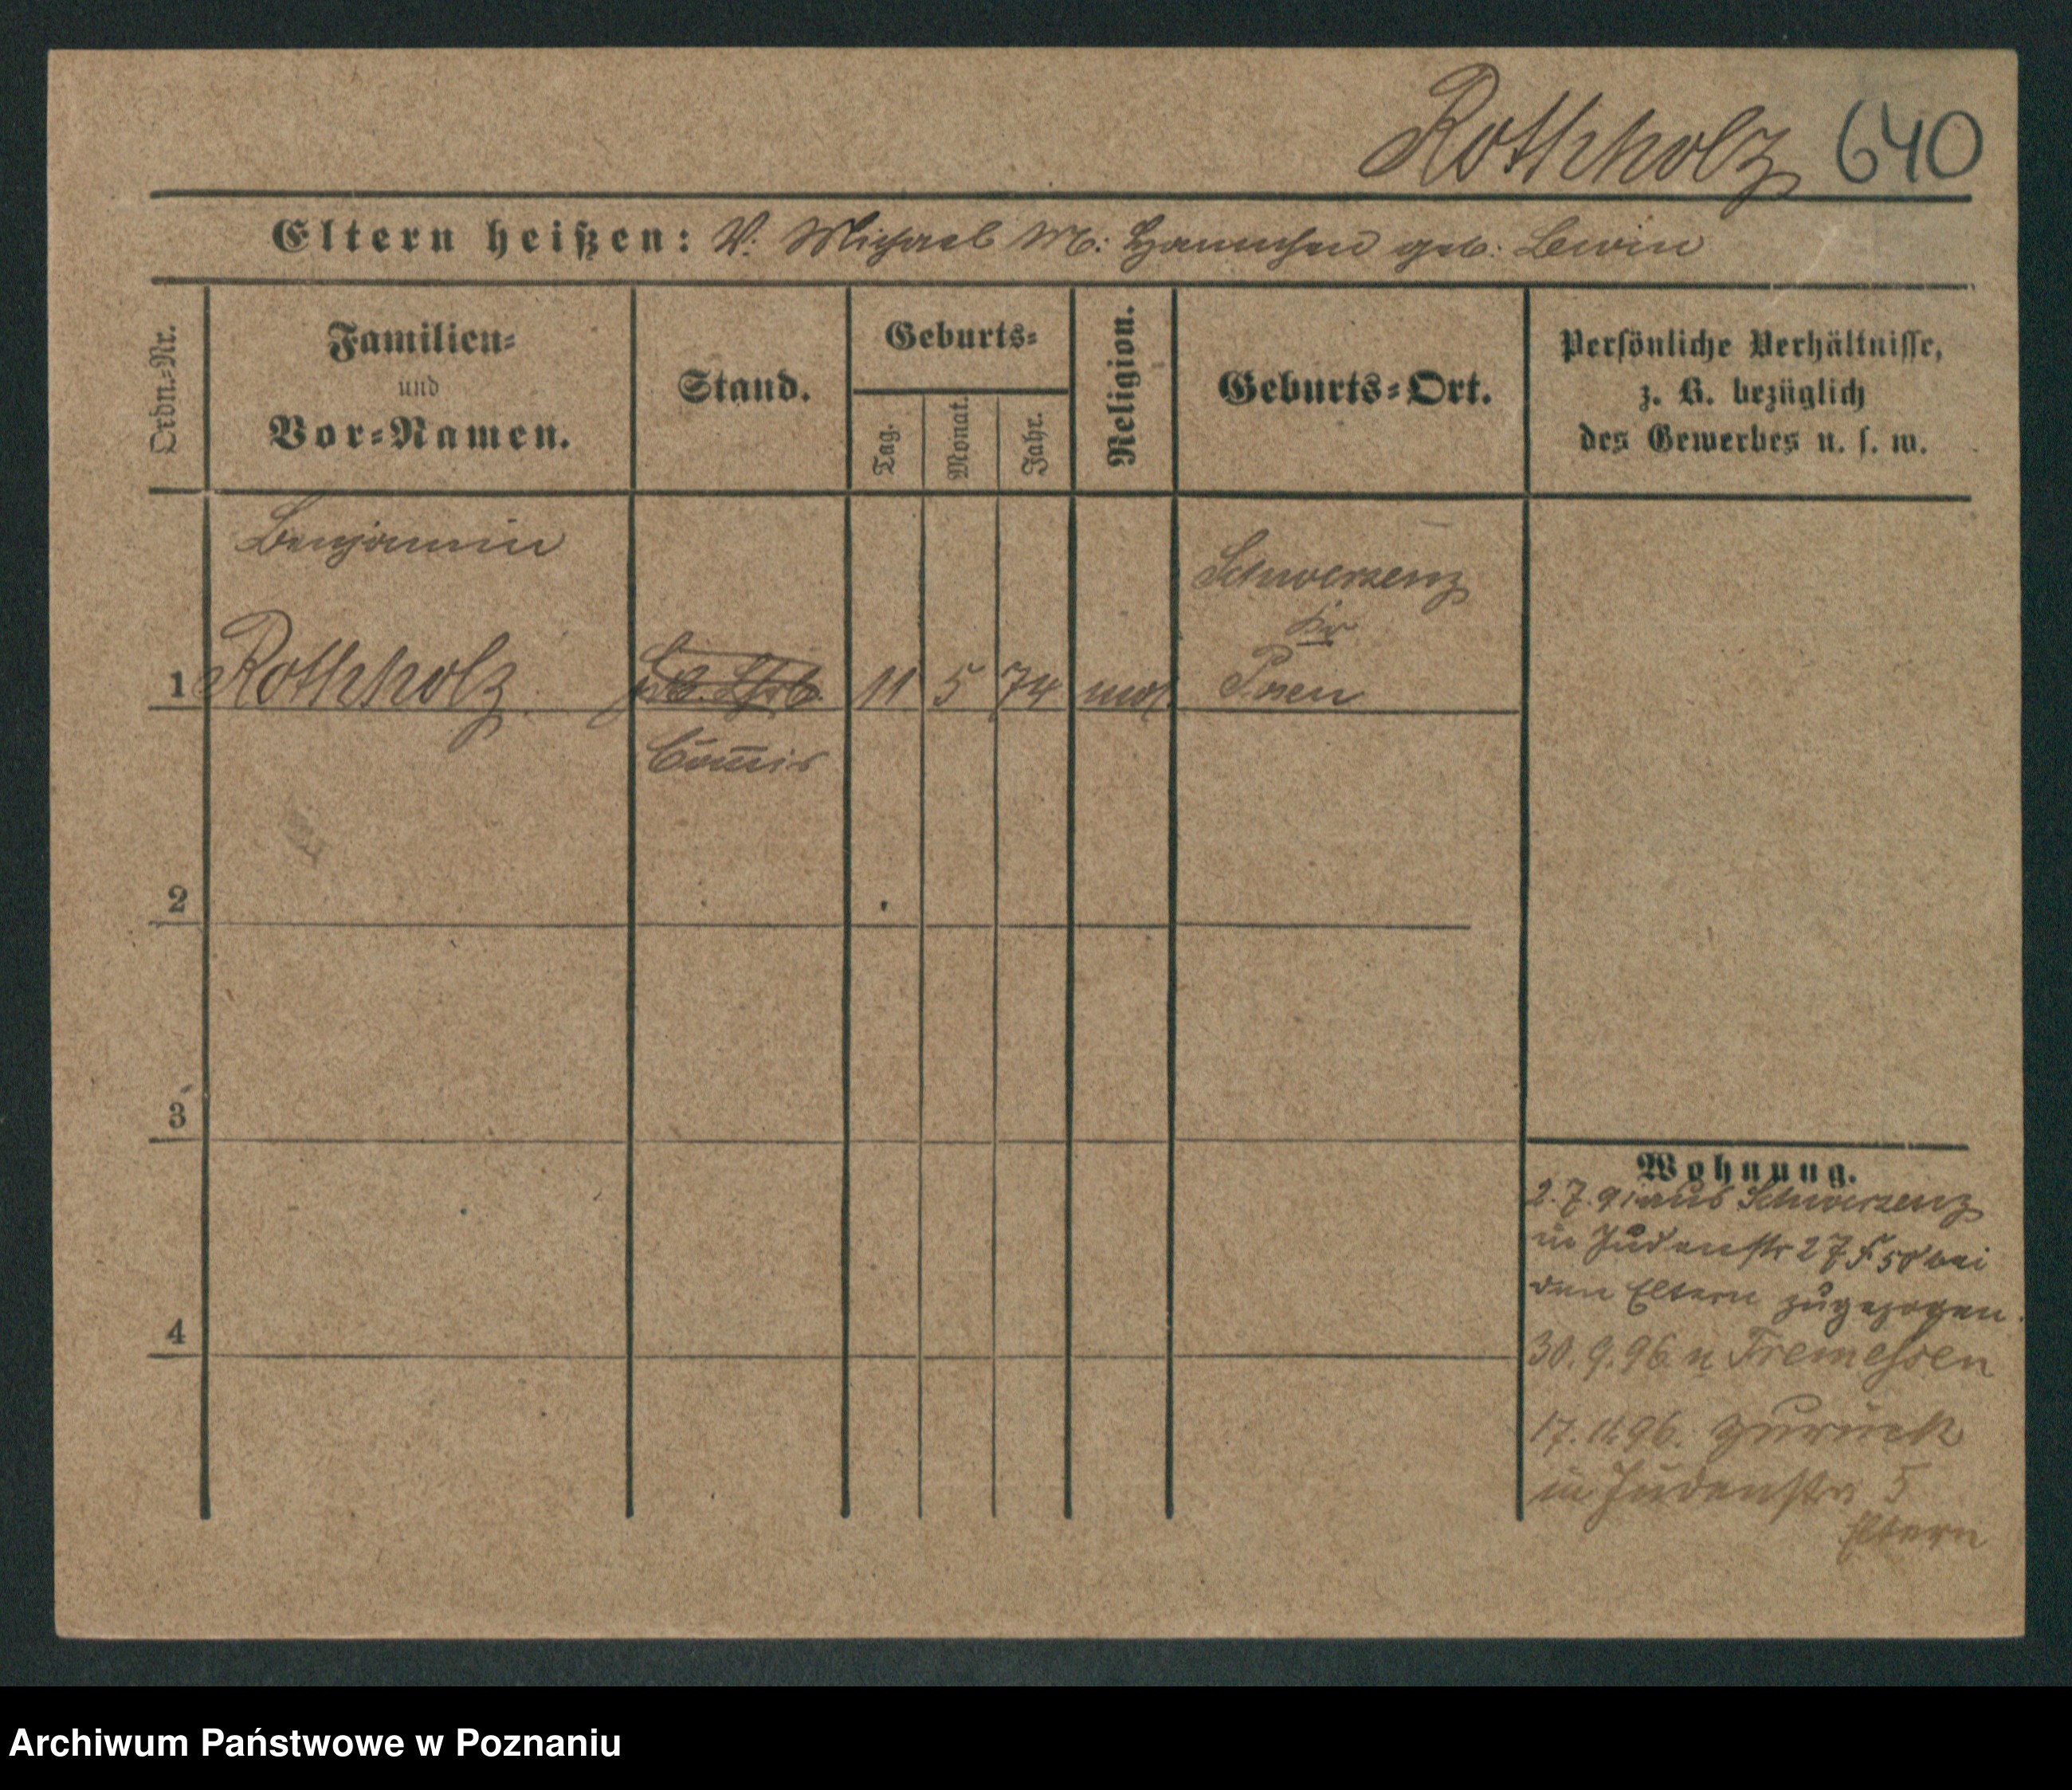 Rothholz 640
Eltern heißen: V: Michael M: Hannchen geb: Lewin
Ordn.-Nr.
Familien-
und
Vor-Namen.
Stand.
Geburts-
Tag.
Monat.
Jahr.
Religion.
Geburts-Ort.
Persönliche Verhältnisse,
z. B. bezüglich
des Gewerbes u. s. w.
Benjamin
Schwersenz
Kr
1 Rothholz 11 5 74 mos. Posen
Com̅is
2
3
4
Wohnung.
2.7.91 aus Schwersenz
in Judenstr 27 bei
den Eltern zugezogen.
30.9.96 n Tremessen
17.11.96. zurück
in Judenstr 5
Eltern
Archiwum Państwowe w Poznaniu